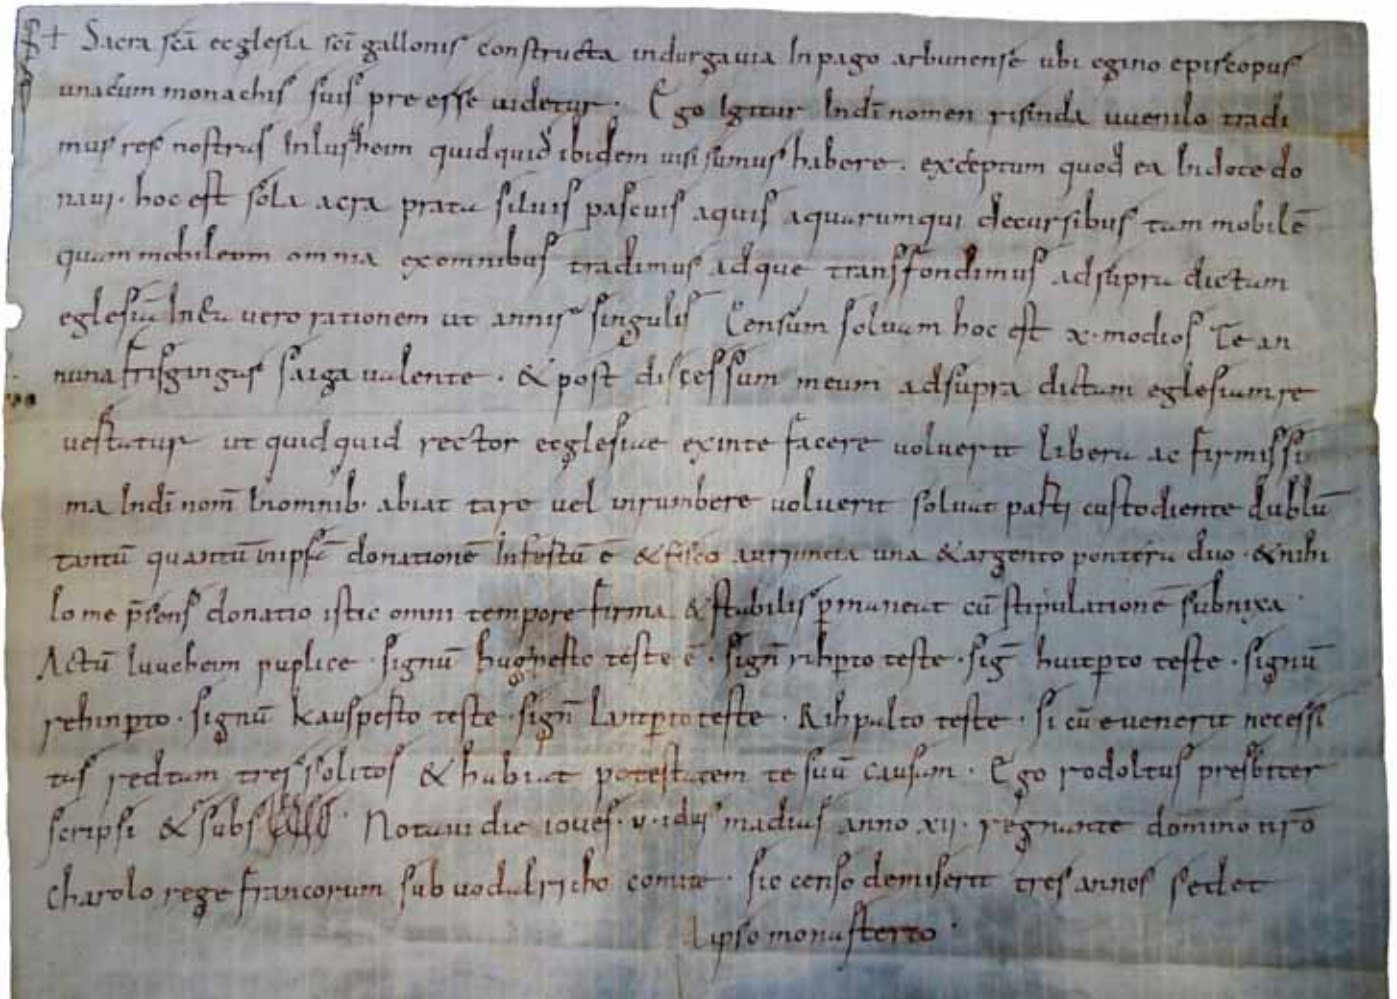 + Sacra scā ecglesia scī gallonis constructa in durgauia In pago arbunense ubi egino episcopus
una cum monachis suis preesse uidetur. Ego Igitur In dī nomen risinda uuenilo tradi
mus res nostras In lusheim quidquid ibidem uisi sumus habere. exceptum quod ea In dote do
naui. hoc est sola acra prata siluis pascuis aquis aquarumqui decursibus tam mobilē
quam mobileom omnia ex omnibus tradimus adque transfondimus ad supra dictam
eglesia In ea uero rationem ut annis singulis Censum soluam hoc est x. modios de an
nuna frisgingas saiga ualente. & post discessum meum ad supra dictam eglesiam re
uestatur ut quidquid rector ecglesiae exinte facere uoluerit libera ac firmissi
ma In dī nom̄ In omnib. abiat uel inrumbere uoluerit soluat parti custodiente dublū
tantū quantū in ipsa donationē Infestū ē & fisco auri uncia una & argento pontera duo. & nihi
lo me p̄sens donatio istic omni tempore firma & stabilis permaneat cū stipulatione subnixa.
Actū luueheim puplice. signū teste ē. sign̄ rihp̱to teste. siḡ huitp̱to teste. signū
rehinp̱to. signū kauspesto teste. sign̄ lantp̱to teste. Rihpalto teste. si cū euenerit necessi
tas redtam tres solitos & habiat potestatem te suū causam. Ego rodoltus presbiter
scripsi & subs. Notaui die ioues. u. idus madius anno xii. regnante domino nrō
Charolo rege francorum sub uodalricho comite. sic censo demiserit tres annos sedet
Ipso monasterio.